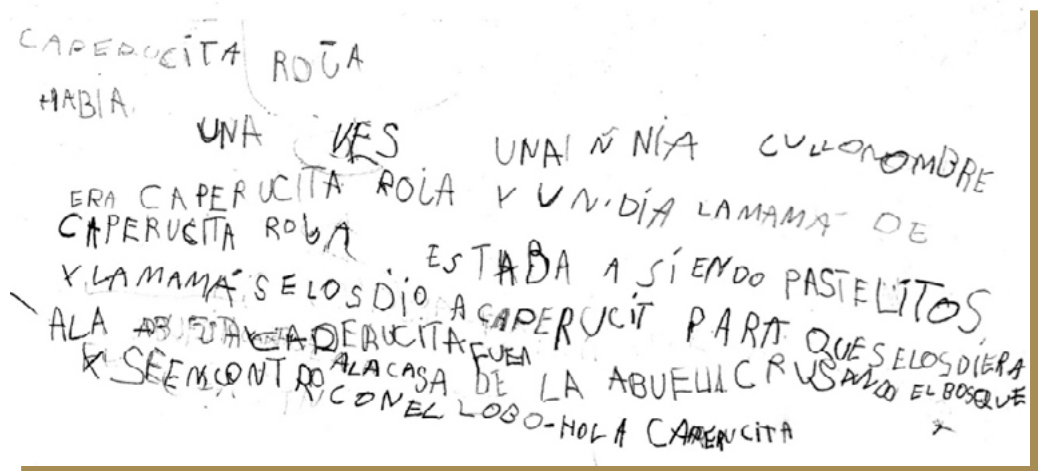 CAPERUCITA ROJA
HABIA
UNA VES UNAI ÑNÍA CULLONOMBRE
ERA CAPERUCITA ROJA Y UN DÍA LAMAMÁ DE
CAPERUCITA ROJA ESTABA A SÍENDO PASTELITOS
Y LA MAMÁ SELOSDIO A CAPERUCIT PARA QUESELOSDIERA
ALA YCAPERUCITA FUEA ALACASA DE LA ABUELLI CRUSANDO ELBOSQUE
Y SEENCONTRO CONEL LOBO-HOLA CAPERUCITA